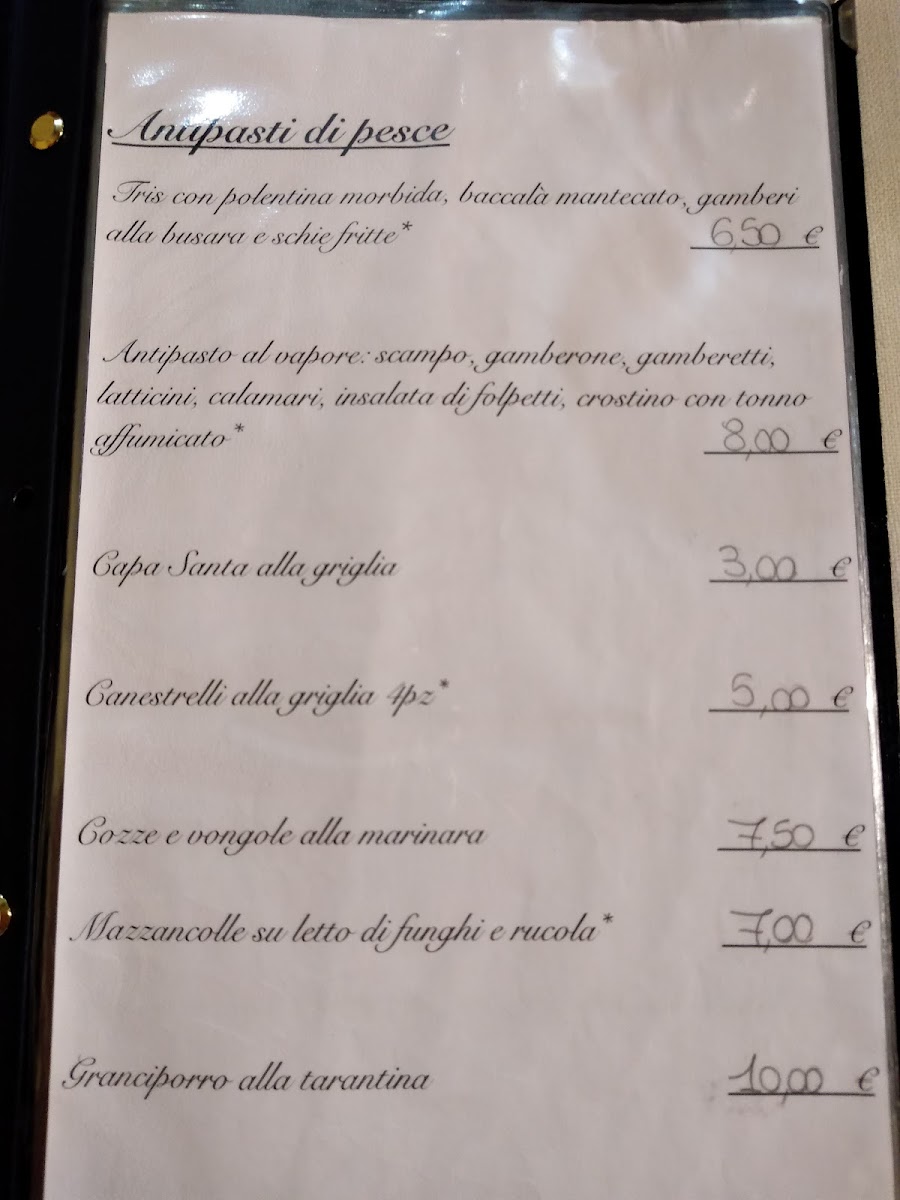 Antipasti di pesce
Tris con polentina morbida, baccalà mantecato, gamberi
alla busara e schie fritte* 6,50 €
Antipasto al vapore: scampo, gamberone, gamberetti,
latticini, calamari, insalata di folpetti, crostino con tonno
affumicato* 8,00 €
Capa Santa alla griglia 3,00 €
Canestrelli alla griglia 4pz* 5,00 €
Cozze e vongole alla marinara 7,50 €
Mazzancolle su letto di funghi e rucola* 7,00 €
Granciporro alla tarantina 10,00 €